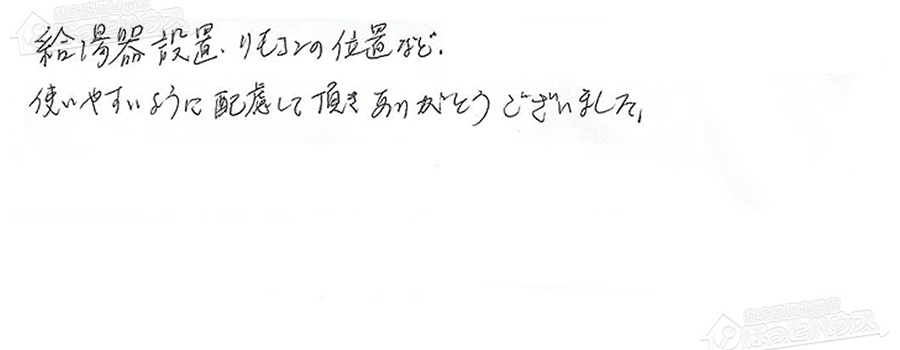 給湯器設置、リモコンの位置など、
使いやすいように配慮して頂きありがとうございました。
ほっとハウス